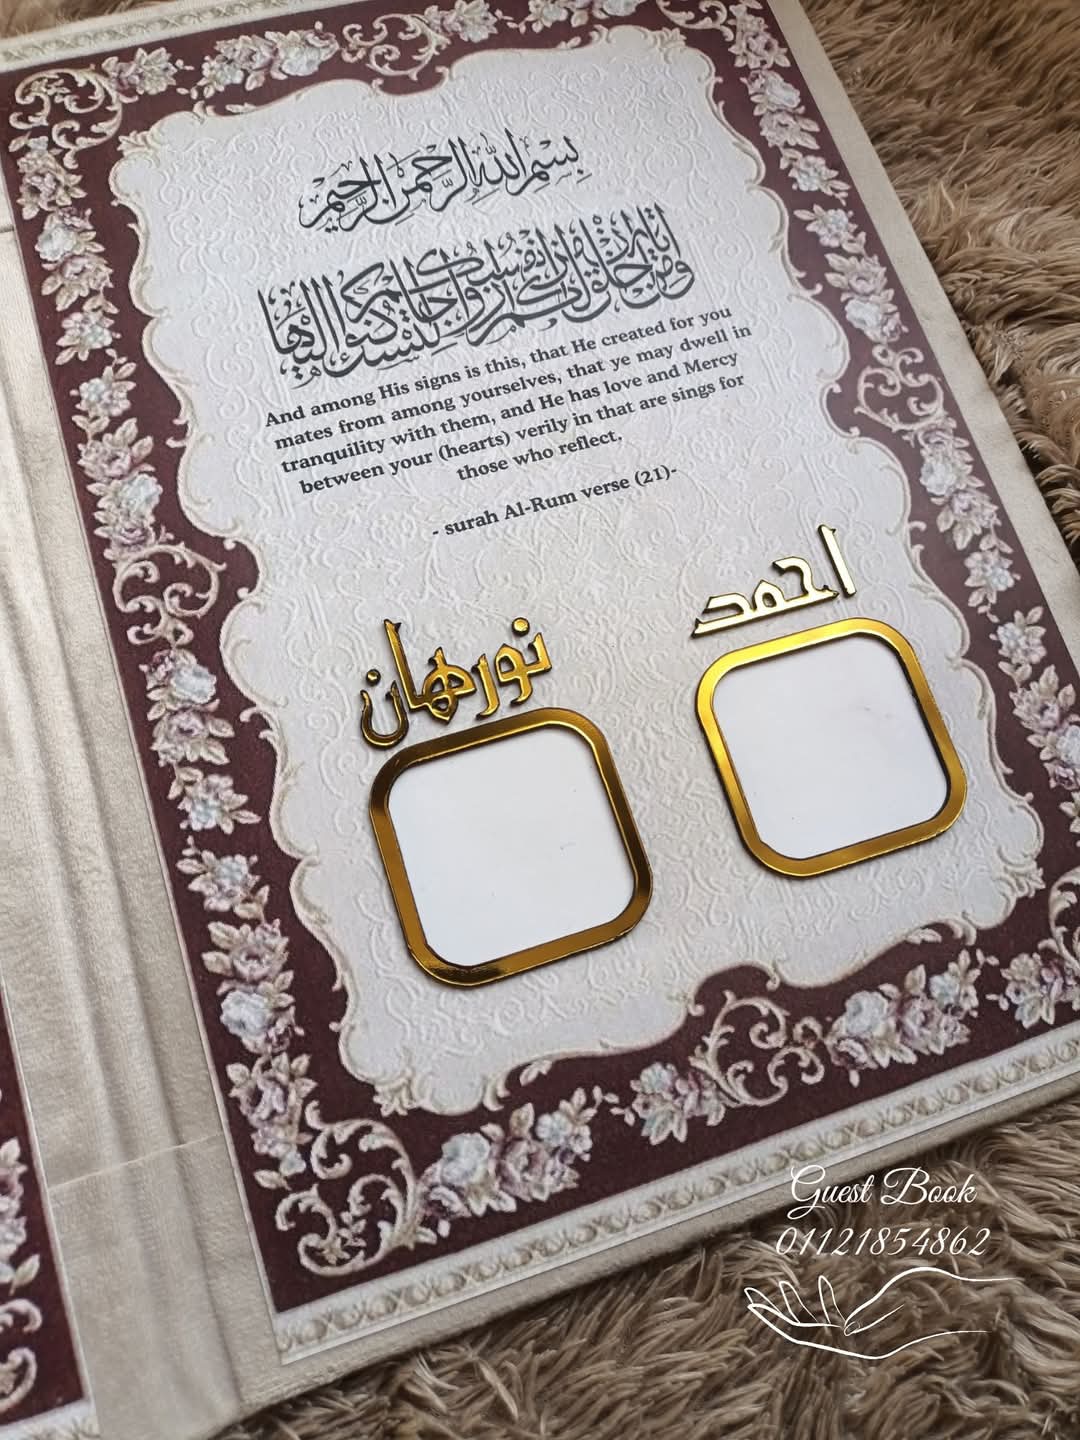 بِسْمِ اللهِ الرَّحْمَنِ الرَّحِيمِ
ومن اياته ان خلق لكم من انفسكم ازواجا لتسكنوا اليها
And among His signs is this, that He created for you
mates from among yourselves, that ye may dwell in
tranquility with them, and He has love and Mercy
between your (hearts) verily in that are sings for
those who reflect.
- surah Al-Rum verse (21)-
احمد
نورهان
Guest Book
01121854862